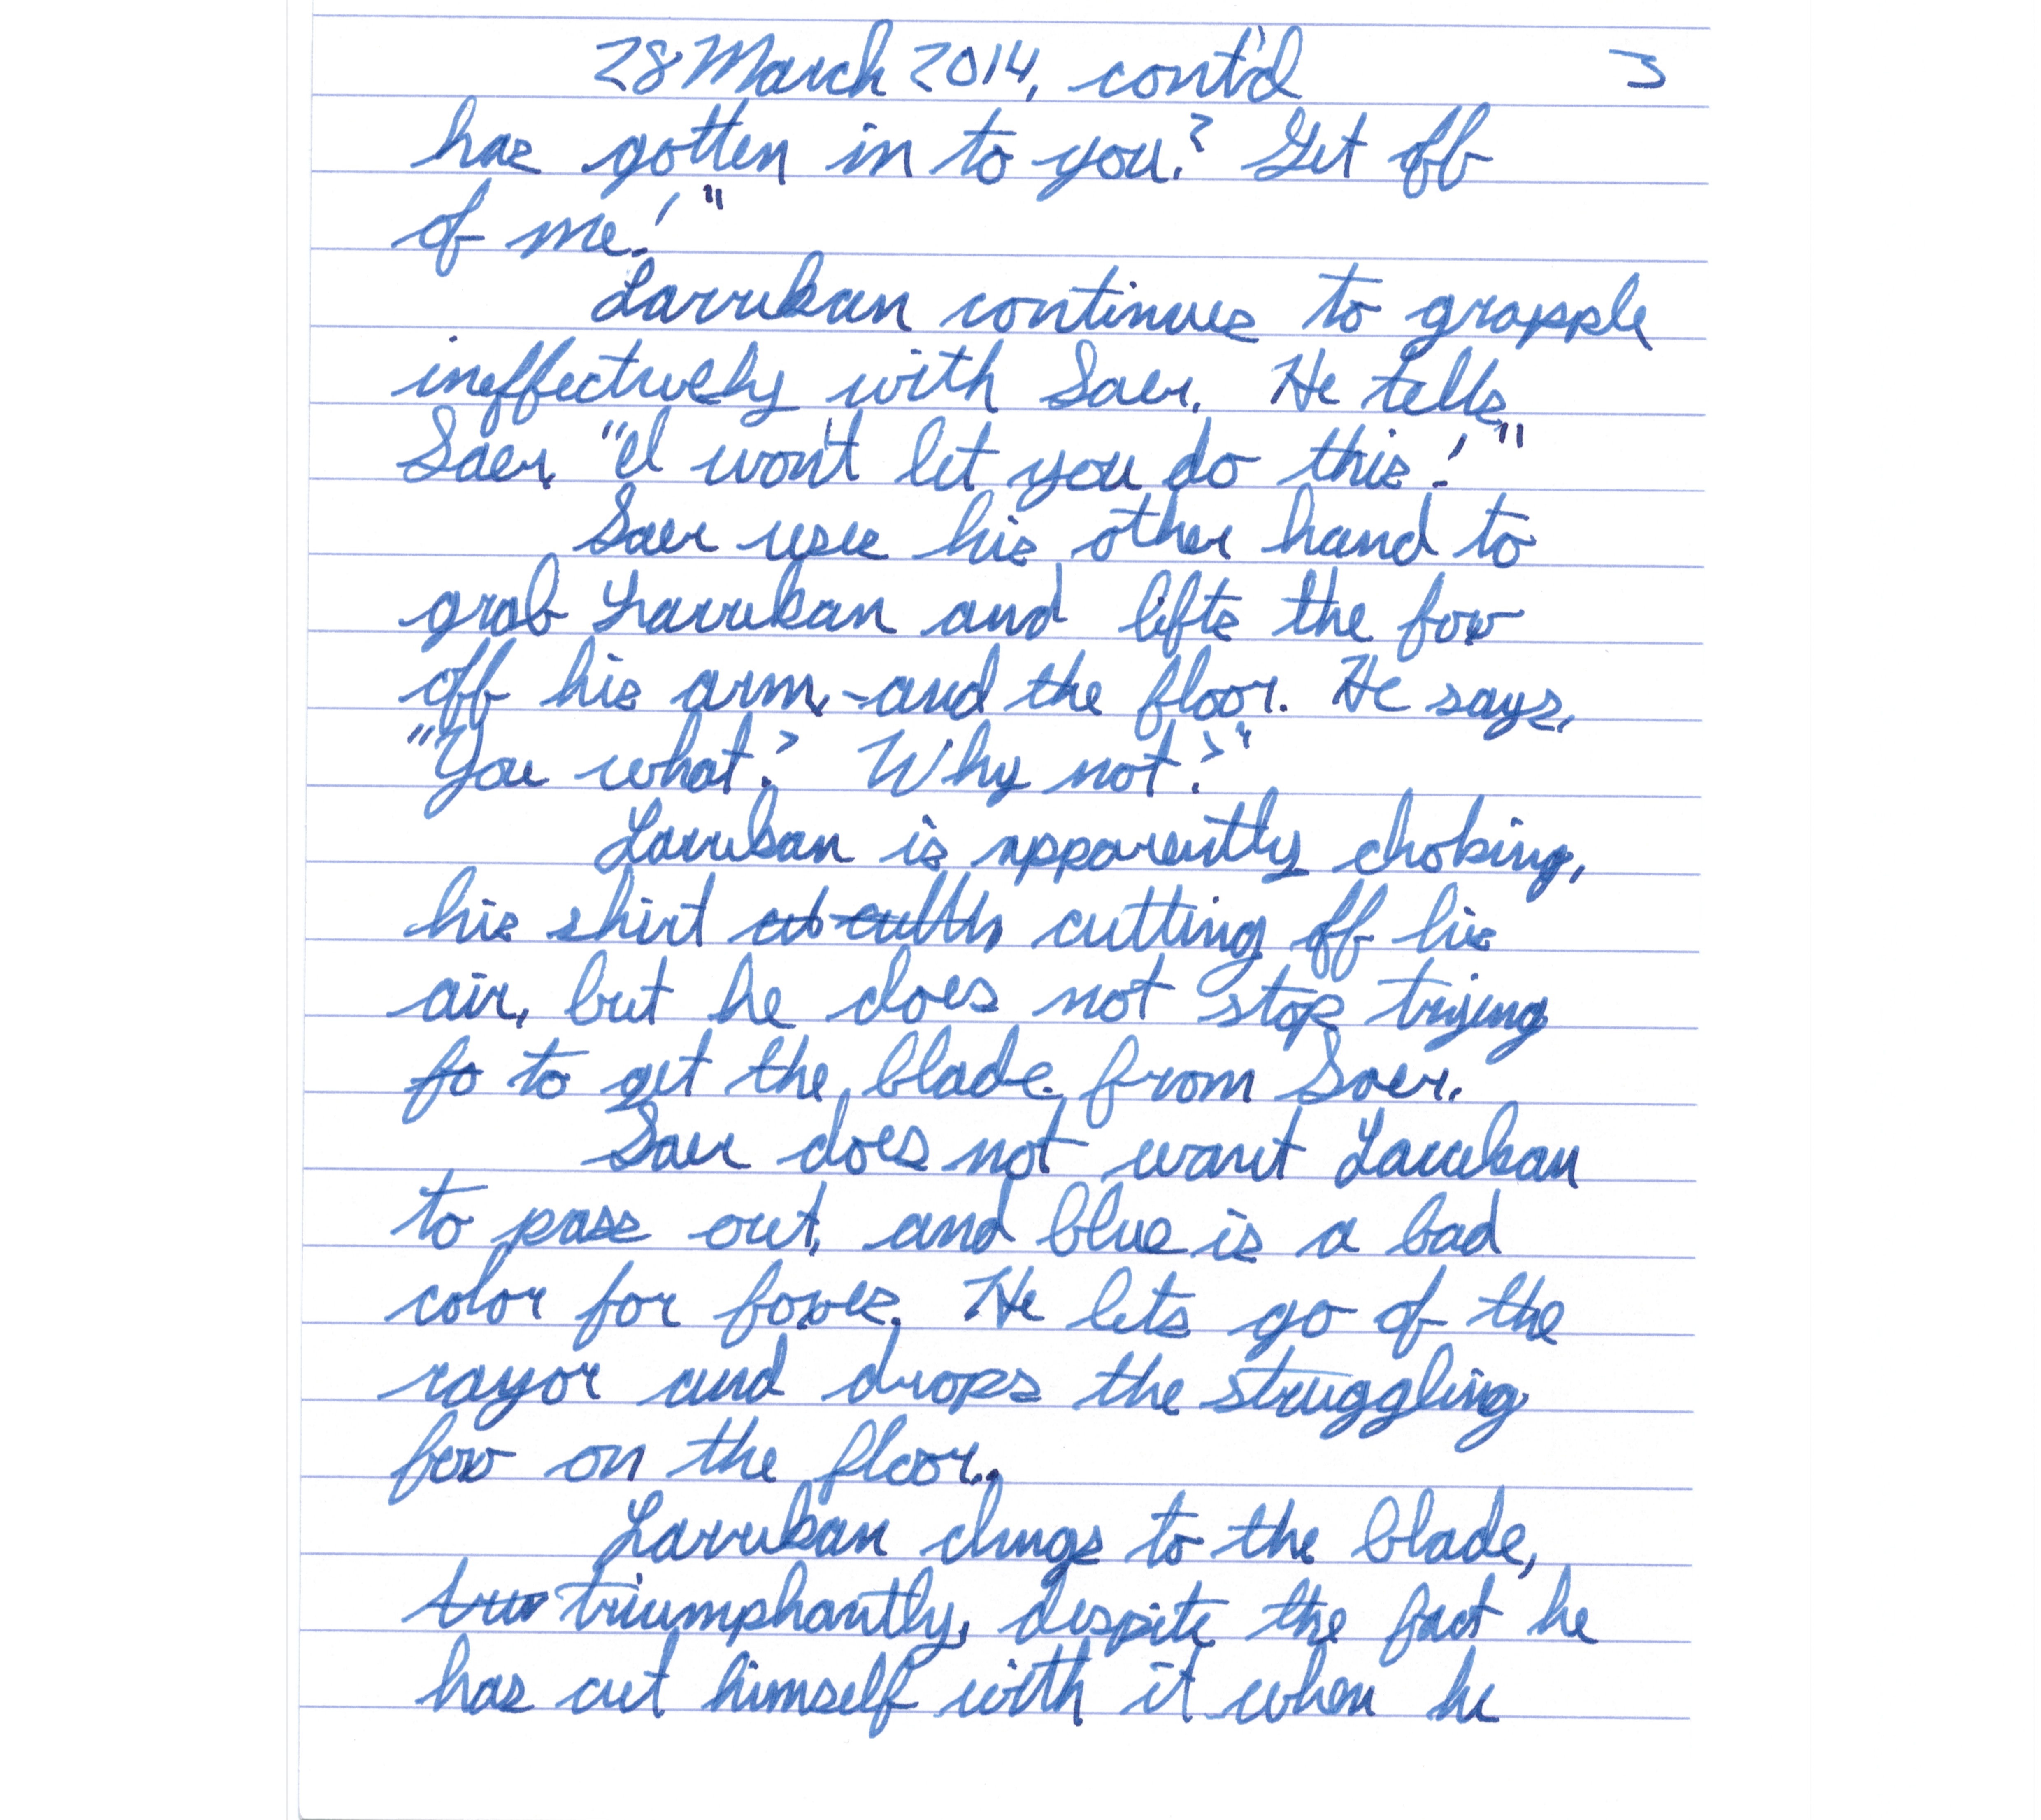 28 March 2014, cont'd 3
has gotten in to you? Get off
of me!"
Larrikan continues to grapple
ineffectively with Saer. He tells
Saer, "I won't let you do this!"
Saer uses his other hand to
grab Larrikan and lifts the fox
off his arm, -and the floor. He says,
"You what? Why not?"
Larrikan is apparently choking,
his shirt cutting off his
air, but he does not stop trying
fo to get the blade from Saer.
Saer does not want Larrikan
to pass out, and blue is a bad
color for foxes. He lets go of the
razor and drops the struggling
fox on the floor.
Larrikan clings to the blade,
triumphantly, despite the fact he
has cut himself with it when he